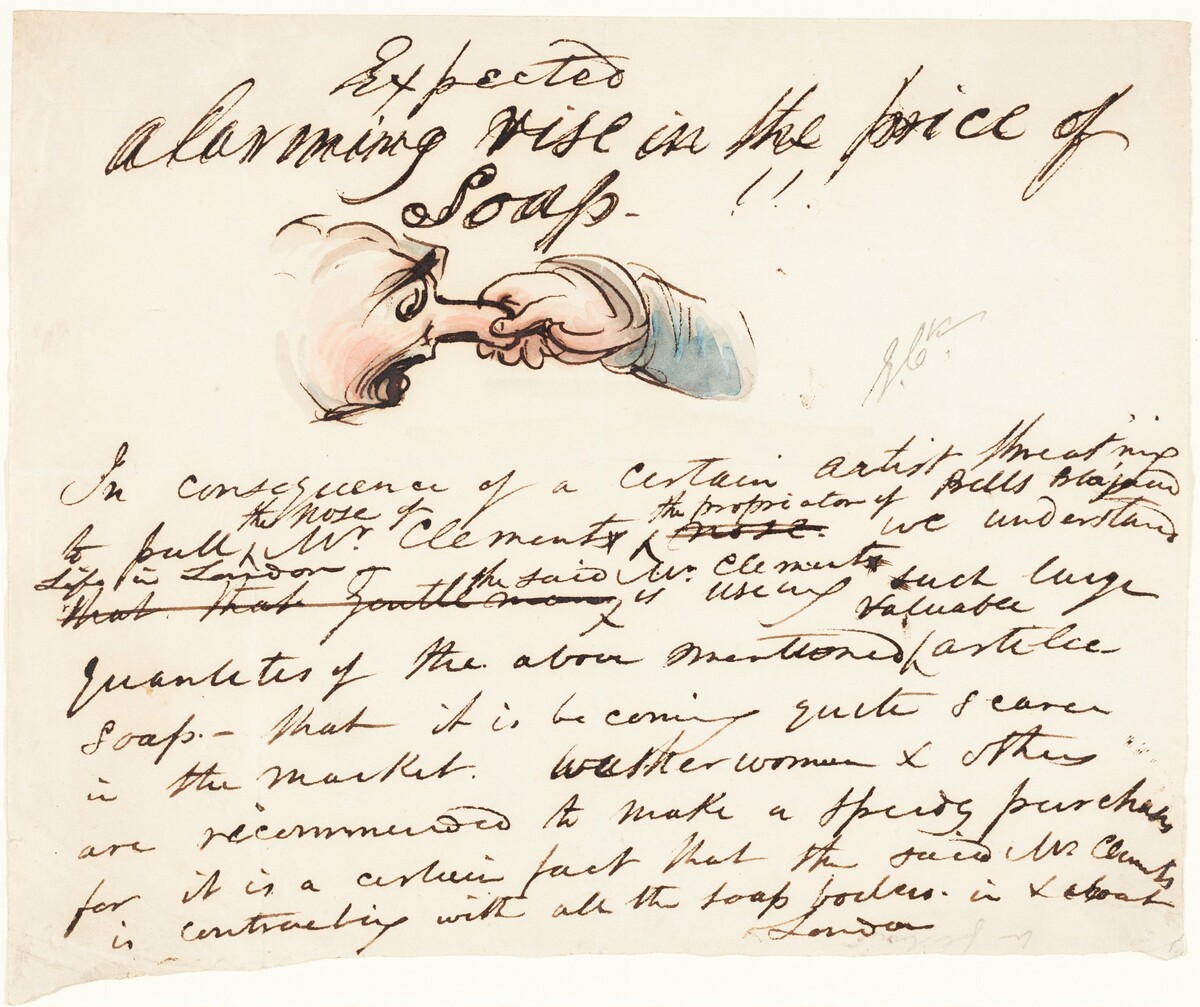 Expected
alarming rise in the price of
Soap - !!!
G. Ck
In consequence of a certain artist threat'ning
to pull the nose of Mr. Clements nose. the proprietor of Bells
Life in London - we understand
that that gentleman the said Mr. Clements is using such large
quantetes of the above mentioned valuable article
Soap - that it is becoming quite scarce
in the market. washerwomen & others
are recommended to make a speedy purchase
for it is a certain fact that the said Mr Clements
is contracting with all the soap boilers. in & about
London